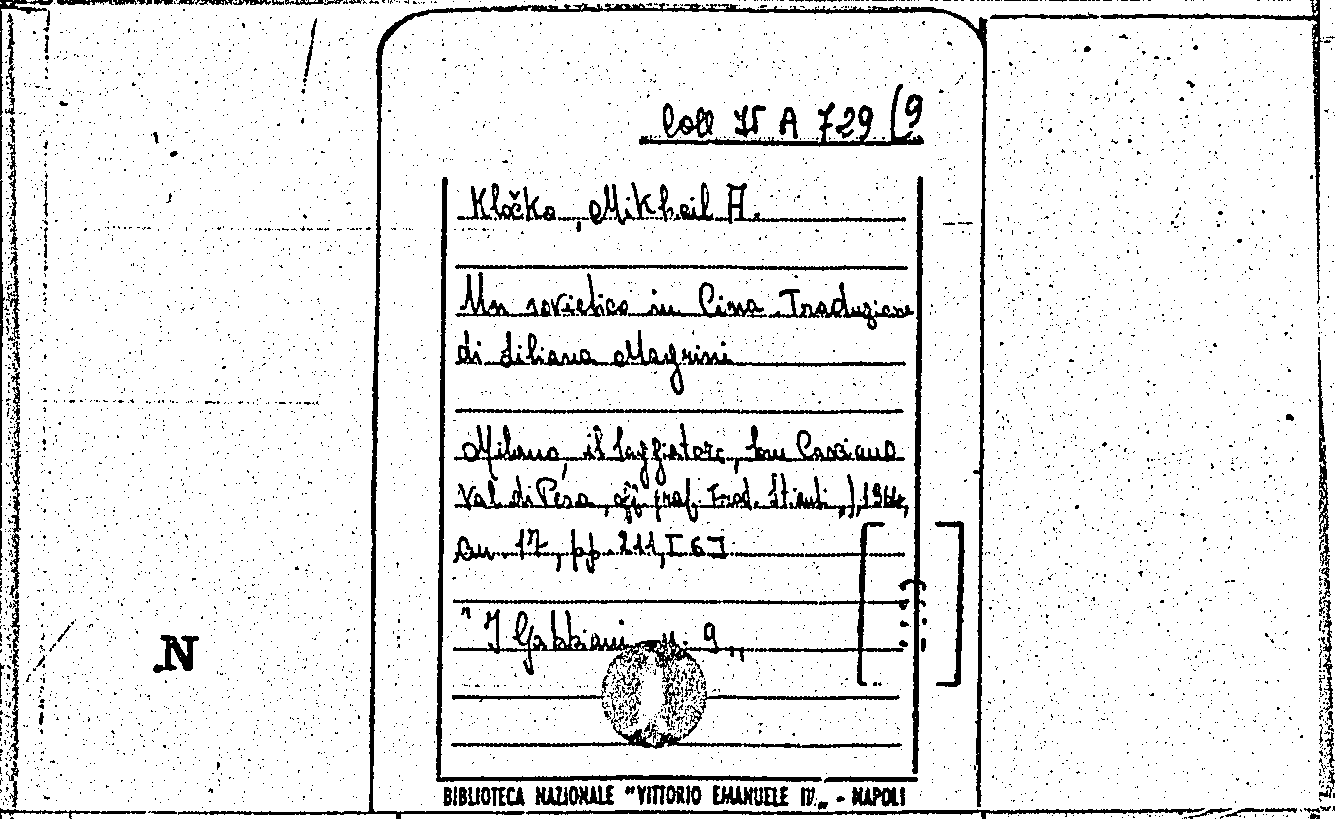 Coll IV A 729 (9
Kločko, Mikhail A.
Un sovietico in Cina. Traduzione
di Liliana Magrini
Milano, il Saggiatore, (San Casciano
Val di Pesa, off. graf. Frat. Stianti,), 1964,
cm. 17, pp. 211, I 6 I
"I Gabbiani n. 9„
N
BIBLIOTECA NAZIONALE "VITTORIO EMANUELE III„ - NAPOLI